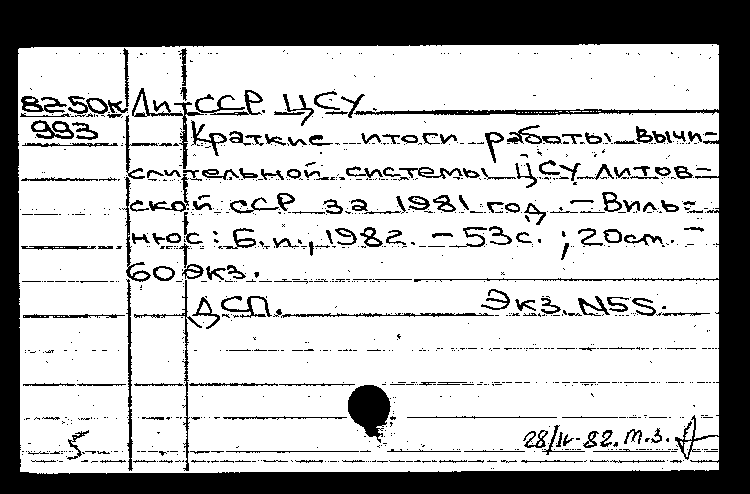 82-50к Лит ССР. ЦСУ.
993 Краткие итоги работы вычи-
слительной системы ЦСУ Литов-
ской ССР за 1981 год. - Виль-
нюс: Б.и., 1982. - 53с. ; 20см. -
60 экз.
ДСП. Экз. N55.
5 28/IV-82. т.з.